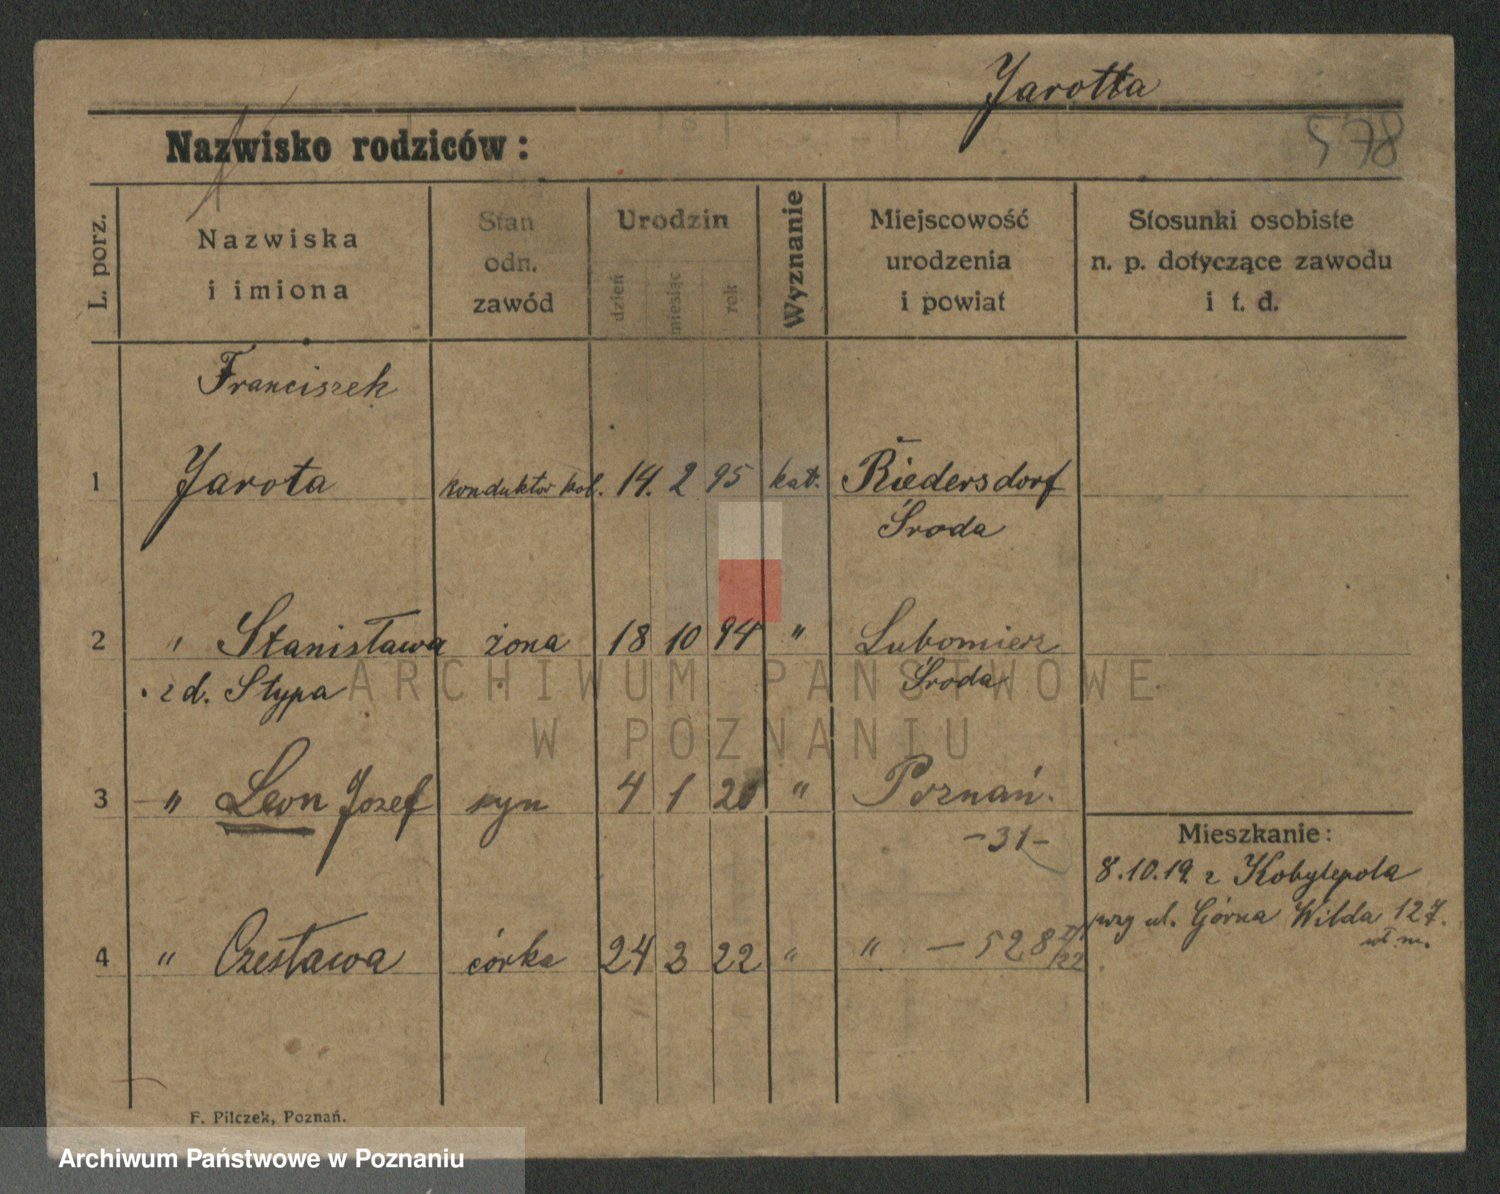 Jarotta
578
Nazwisko rodziców:
L. porz.
Nazwiska
i imiona
Stan
odn.
zawód
Urodzin
dzień
miesiąc
rok
Wyznanie
Miejscowość
urodzenia
i powiat
Stosunki osobiste
n. p. dotyczące zawodu
i t. d.
Franciszek
1 Jarota konduktor kol. 14. 2 95 kat. Riedersdorf
Środa
2 " Stanisława żona 18 10 94 " Lubomierz
z d. Stypa Środa
3 " Leon Jozef syn 4 1 20 " Poznań.
-31-
Mieszkanie:
8.10.19 z Kobylepola
przy ul. Górna Wilda 127.
wł. m.
4 " Czesława córka 24 3 22 " " - 528
/22
F. Pilczek, Poznań.
ARCHIWUM PAŃSTWOWE
W POZNANIU
Archiwum Państwowe w Poznaniu